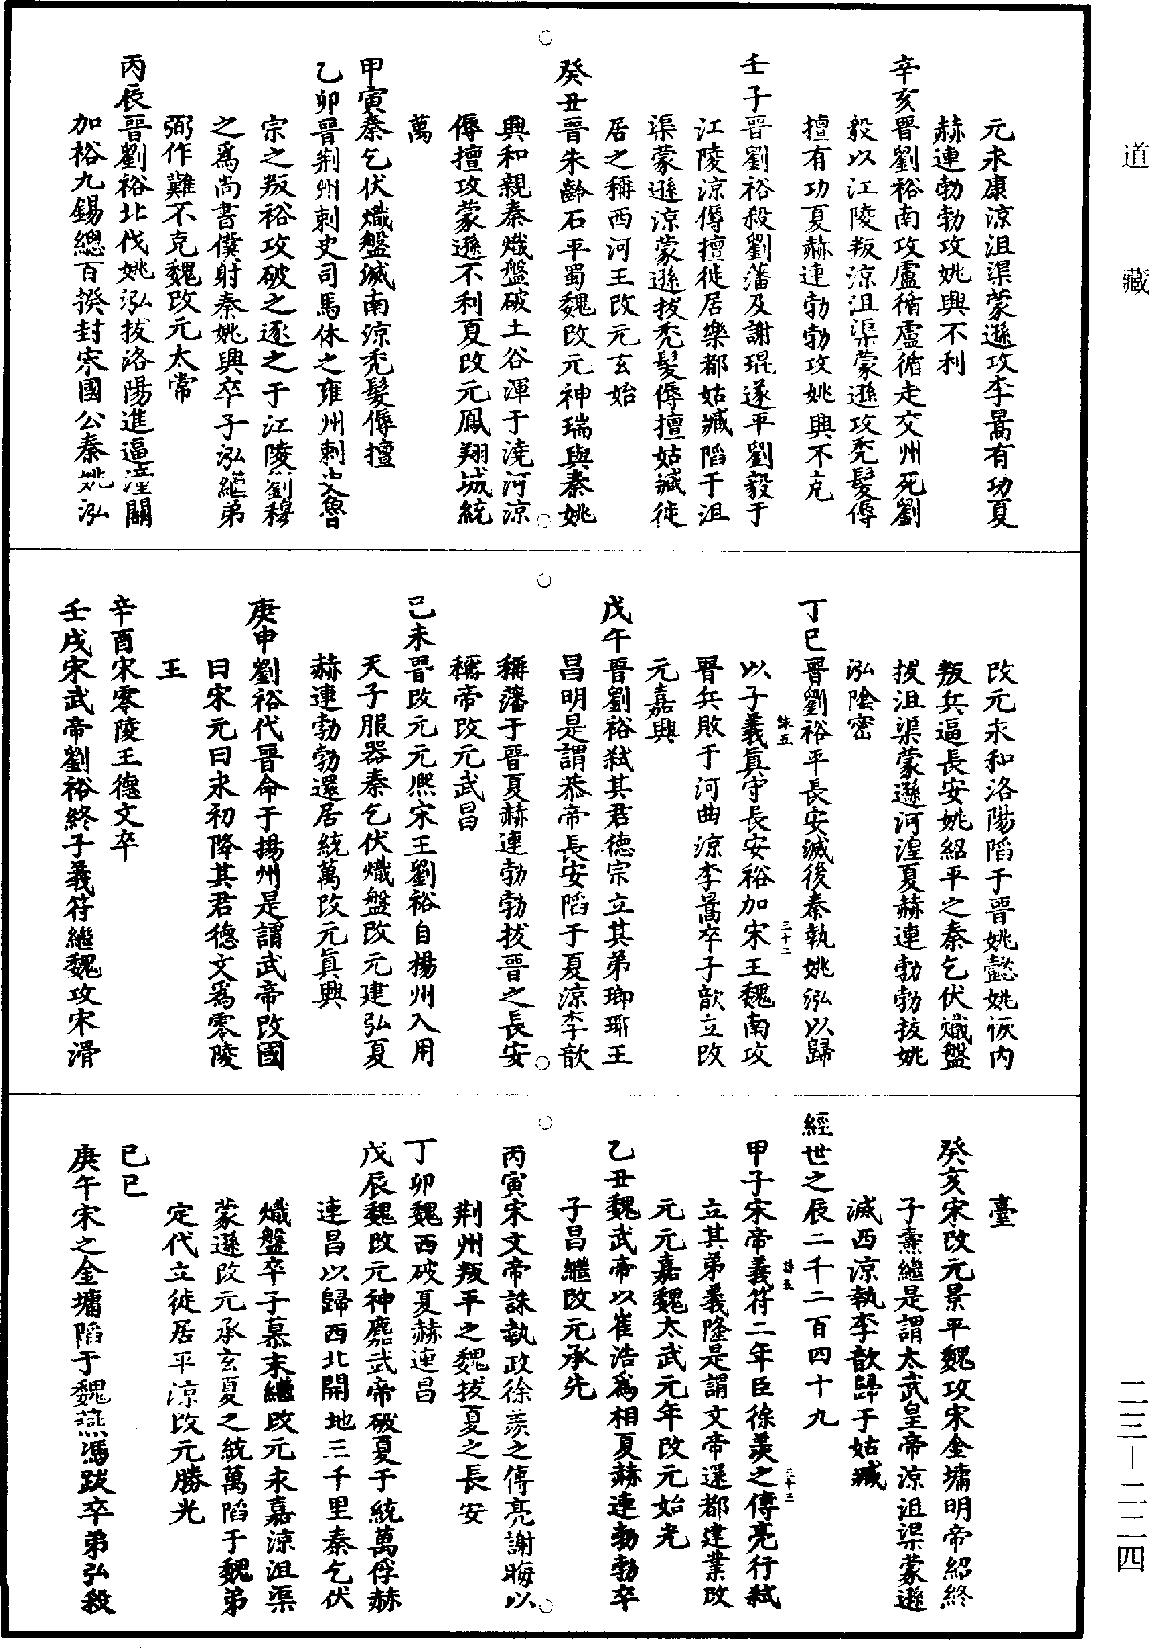 道藏
元永康涼沮渠蒙遜攻李暠有功夏
赫連勃勃攻姚興不利
辛亥晉劉裕南攻盧循盧循走交州死劉
毅以江陵叛涼沮渠蒙遜攻禿髮傉
檀有功夏赫連勃勃攻姚興不克
壬子晉劉裕殺劉藩及謝琨遂平劉毅于
江陵涼傉檀徙居樂都姑臧陷于沮
渠蒙遜涼蒙遜拔禿髮傉檀姑臧徙
居之稱西河王改元玄始
癸丑晉朱齡石平蜀魏改元神瑞與秦姚
興和親秦熾盤破土谷渾于澆河涼
傉檀攻蒙遜不利夏改元鳳翔城統
萬
甲寅秦乞伏熾盤滅南涼禿髮傉檀
乙卯晉荆州刺史司馬休之雍州刺史魯
宗之叛裕攻破之逐之于江陵劉穆
之爲尚書僕射秦姚興卒子泓繼弟
弼作難不克魏改元太常
丙辰晉劉裕北伐姚泓拔洛陽進逼潼關
加裕九錫總百揆封宋國公秦姚泓
改元永和洛陽陷于晉姚懿姚恢内
叛兵逼長安姚紹平之秦乞伏熾盤
拔沮渠蒙遜河湟夏赫連勃勃拔姚
泓陰密
丁巳晉劉裕平長安滅後秦執姚泓以歸
以子義真守長安裕加宋王魏南攻
晉兵敗于河曲涼李暠卒子歆立改
元嘉興
戊午晉劉裕弑其君德宗立其弟瑯琊王
昌明是謂恭帝長安陷于夏涼李歆
稱藩于晉夏赫連勃勃拔晉之長安
稱帝改元武昌
己未晉改元元熙宋王劉裕自揚州入用
天子服器秦乞伏熾盤改元建弘夏
赫連勃勃還居統萬改元真興
庚申劉裕代晉命于揚州是謂武帝改國
曰宋元曰永初降其君德文爲零陵
王
辛酉宋零陵王德文卒
壬戌宋武帝劉裕終子義符繼魏攻宋滑
臺
癸亥宋改元景平魏攻宋金墉明帝紹終
子燾繼是謂太武皇帝涼沮渠蒙遜
滅西涼執李歆歸于姑臧
經世之辰二千二百四十九
甲子宋帝義符二年臣徐羨之傅亮行弑
立其弟義隆是謂文帝還都建業改
元元嘉魏太武元年改元始光
乙丑魏武帝以崔浩爲相夏赫連勃勃卒
子昌繼改元承光
丙寅宋文帝誅執政徐羨之傅亮謝晦以
荆州叛平之魏拔夏之長安
丁卯魏西破夏赫連昌
戊辰魏改元神䴥武帝破夏于統萬俘赫
連昌以歸西北開地三千里秦乞伏
熾盤卒子慕末繼改元永嘉涼沮渠
蒙遜改元承玄夏之統萬陷于魏弟
定代立徙居平涼改元勝光
己巳
庚午宋之金墉陷于魏燕馮跋卒弟弘殺
二三—二二四